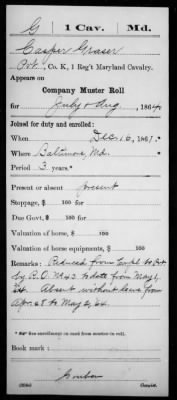 G | 1 Cav. | Md.
Casper Graser
Pvt., Co. K, 1 Reg't Maryland Cavalry.
Appears on
Company Muster Roll
for July & Aug, 1864.
Joined for duty and enrolled:
When Dec 16, 1861.*
Where Baltimore, Md.
Period 3 years.*
Present or absent present
Stoppage, $ 100 for
Due Gov't, $ 100 for
Valuation of horse, $ 100
Valuation of horse equipments, $ 100
Remarks: Reduced from Corpl to Pvt
by R.O. No 43 to date from May 1,
Absent without leave from
Apr. 28 to May 2, 64.
*See enrollment on card from muster-in roll.
Book mark:
(358)
Copyist.